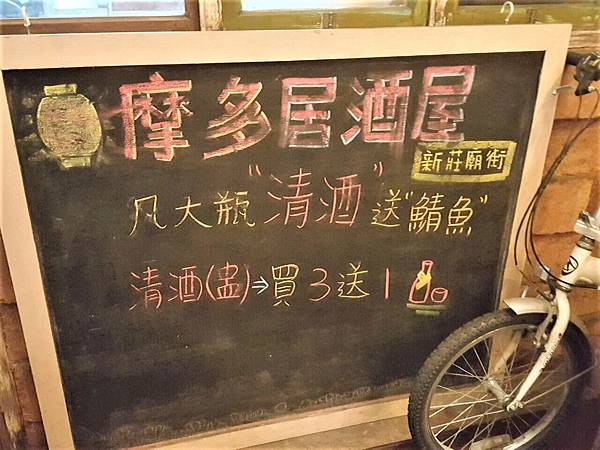 摩多居酒屋
新莊廟街
凡大瓶"清酒"送"鯖魚"
清酒(盅)⇒買3送1